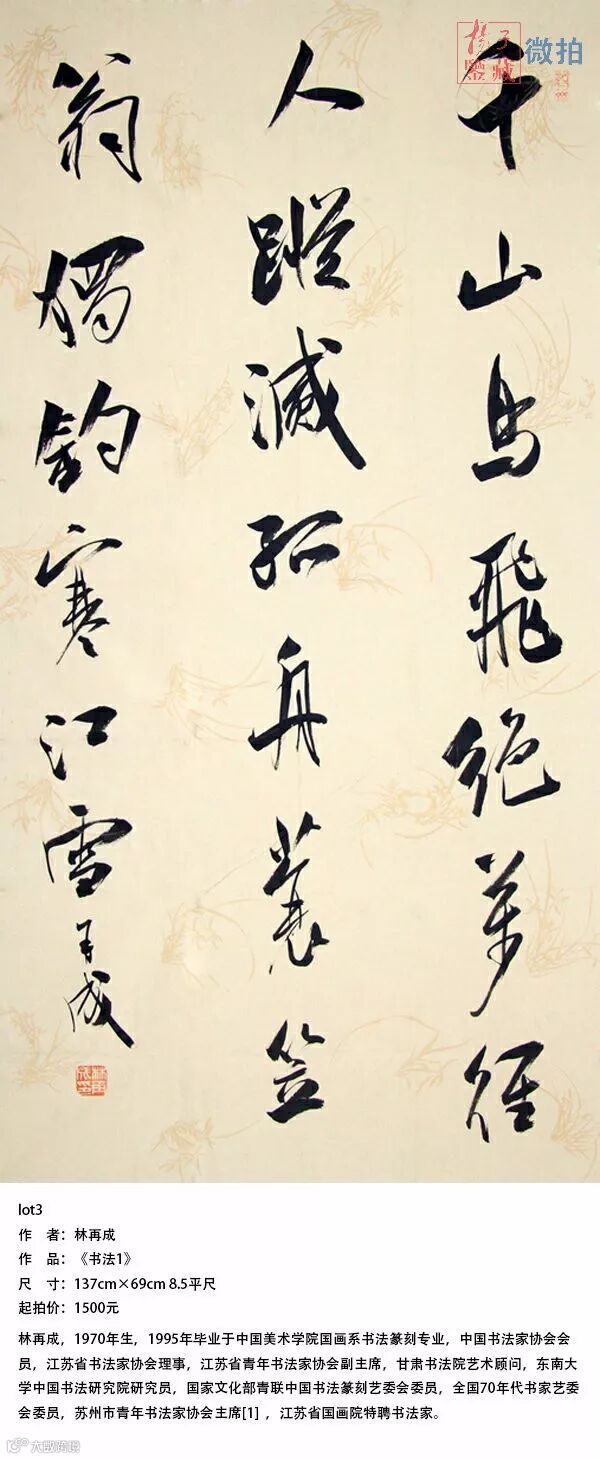 揚子
鑒藏
微拍
千山鳥飛絕萬徑
人蹤滅孤舟蓑笠
翁獨釣寒江雪 再成
lot3
作 者：林再成
作 品：《书法1》
尺 寸：137cm×69cm 8.5平尺
起拍价：1500元
林再成，1970年生，1995年毕业于中国美术学院国画系书法篆刻专业，中国书法家协会会
员，江苏省书法家协会理事，江苏省青年书法家协会副主席，甘肃书法院艺术顾问，东南大
学中国书法研究院研究员，国家文化部青联中国书法篆刻艺委会委员，全国70年代书家艺委
会委员，苏州市青年书法家协会主席[1] ，江苏省国画院特聘书法家。
大数跨境